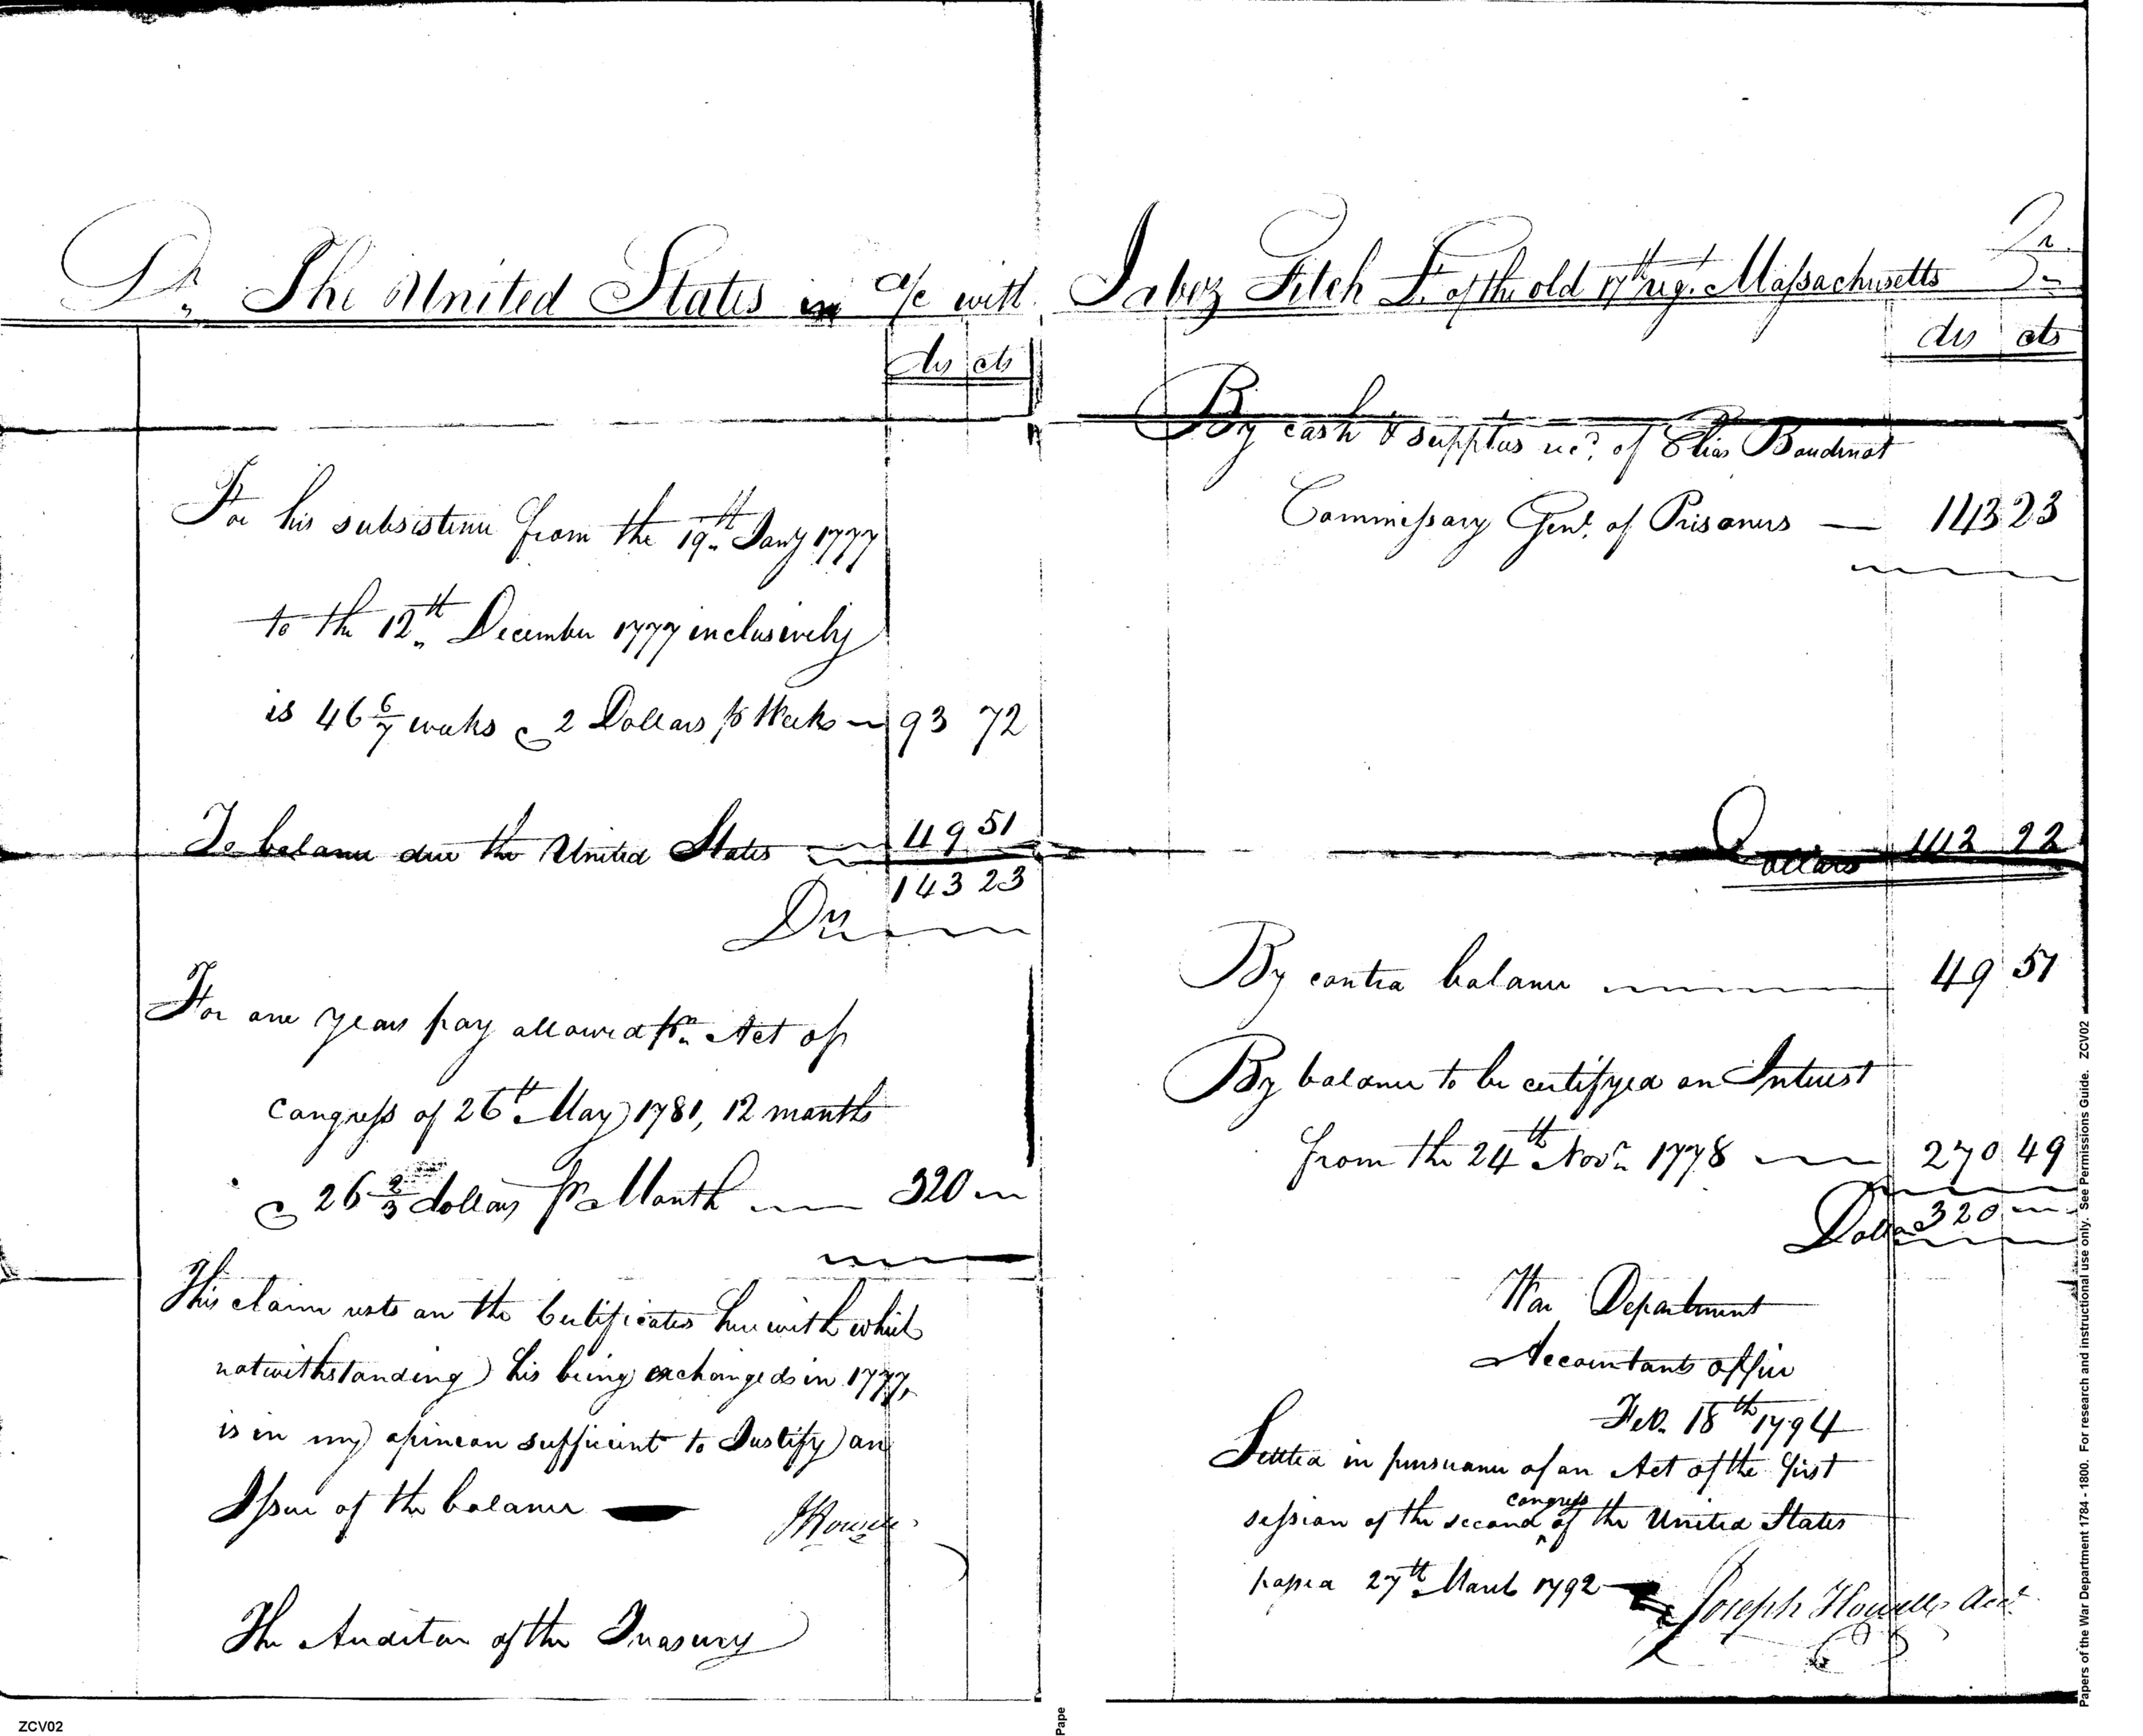 Dr. The United States in a/c with Jabez Fitch Lt. of the old 17th reg. Massachusetts Cr.
dls cts
For his subsistence from the 19th Jany 1777
to the 12th December 1777 inclusively
is 46 6/7 weeks @ 2 Dollars pr Week 93 72
To balance due the United States 49 51
143 23
Drs
For one years pay allowed pr. Act of
Congress of 26th May 1781, 12 months
@ 26 2/3 dollars pr Month 320
This claim rests on the Certificates herewith which
notwithstanding his being exchanged in 1777,
is in my opinion sufficient to Justify an
Issue of the balance
JHowell
The Auditor of the Treasury
dls cts
By cash & supplies recd. of Elias Boudinot
Commissary Genl. of Prisoners — 143 23
Dollars 143 23
By contra balance 49 51
By balance to be certifyed on Interest
from the 24th Novr. 1778 270 49
Dollars 320
War Department
Accountants office
Feb. 18th 1794
Settled in pursuance of an Act of the first
session of the second congress of the United States
passed 27th March 1792
Joseph Howell Acct
Papers of the War Department 1784 - 1800. For research and instructional use only. See Permissions Guide. ZCV02
ZCV02
Pape